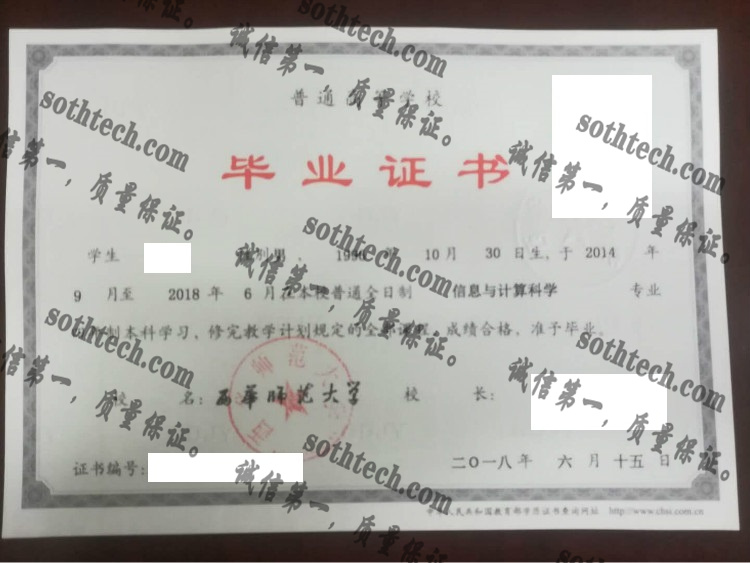 普通 学校
毕业证书
学生 性别男，199 年 10月 30日生，于 2014 年
9 月至 2018年 6月在本校普通全日制 信息与计算科学 专业
制本科学习，修完教学计划规定的全 课程，成绩合格，准予毕业。
校 名：西华师范大学 校 长：
证书编号：
二〇一八年 六月 十五日
中华人民共和国教育部学历证书查询网址 http://www.chsi.com.cn
sothtech.com
诚信第一，质量保证。
sothtech.com
诚信第一，质量保证。
sothtech.com
诚信第一，质量保证。
sothtech.com
诚信第一，质量保证。
sothtech.com
诚信第一，质量保证。
sothtech.com
诚信第一，质量保证。
sothtech.com
诚信第一，质量保证。
sothtech.com
诚信第一，质量保证。